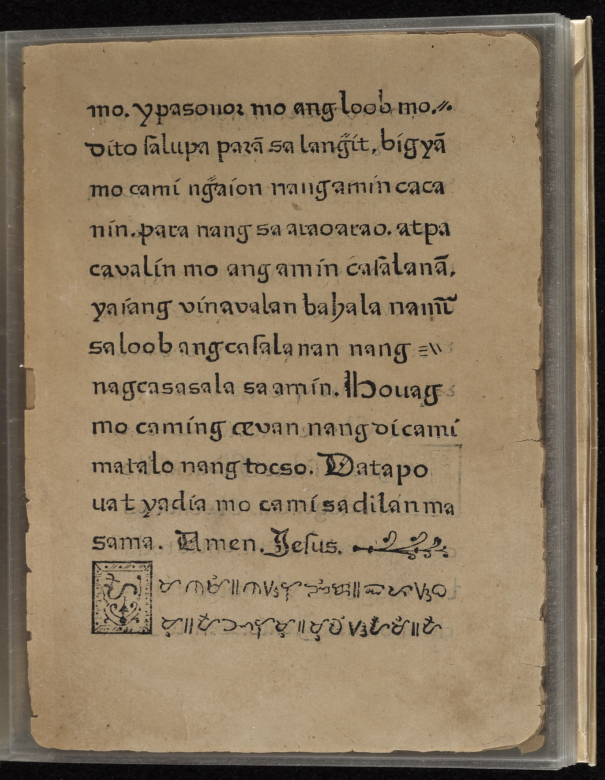 mo. ypasonor mo ang loob mo.
dito ſalupa parã sa langĩt, bigyã
mo cami ng̃aion nang amin caca
nin. para nang sa araoarao. atpa
cavalin mo ang amin caſalanã,
yaſang vinavalan bahala namĩ
sa loob ang caſalanan nang
nagcasasala sa amin. Houag
mo caming ævan nang dicami
matalo nang tocso. Datapo
uat yadia mo cami sa dilan ma
sama. Amen. Jeſus.